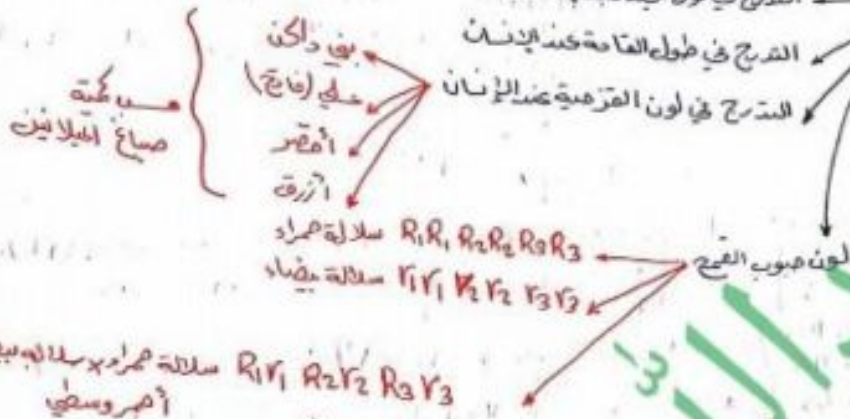 التدرج في طول القامة عند الإنسان
التدرج في لون القزحية عند الإنسان
بني داكن
عسلي (فاتح)
أخضر
أزرق
حسب كمية
صباغ الميلانين
لون حبوب القمح
R1R1 R2R2 R3R3 سلالة حمراء
r1r1 r2r2 r3r3 سلالة بيضاء
R1r1 R2r2 R3r3 سلالة حمراء × سلالة
أحمر وسطي